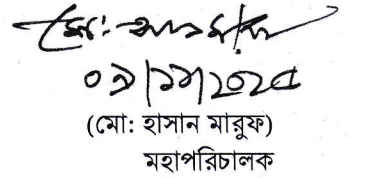 মো: হাসান মারুফ
০৯/১১/২০২৫
(মো: হাসান মারুফ)
মহাপরিচালক